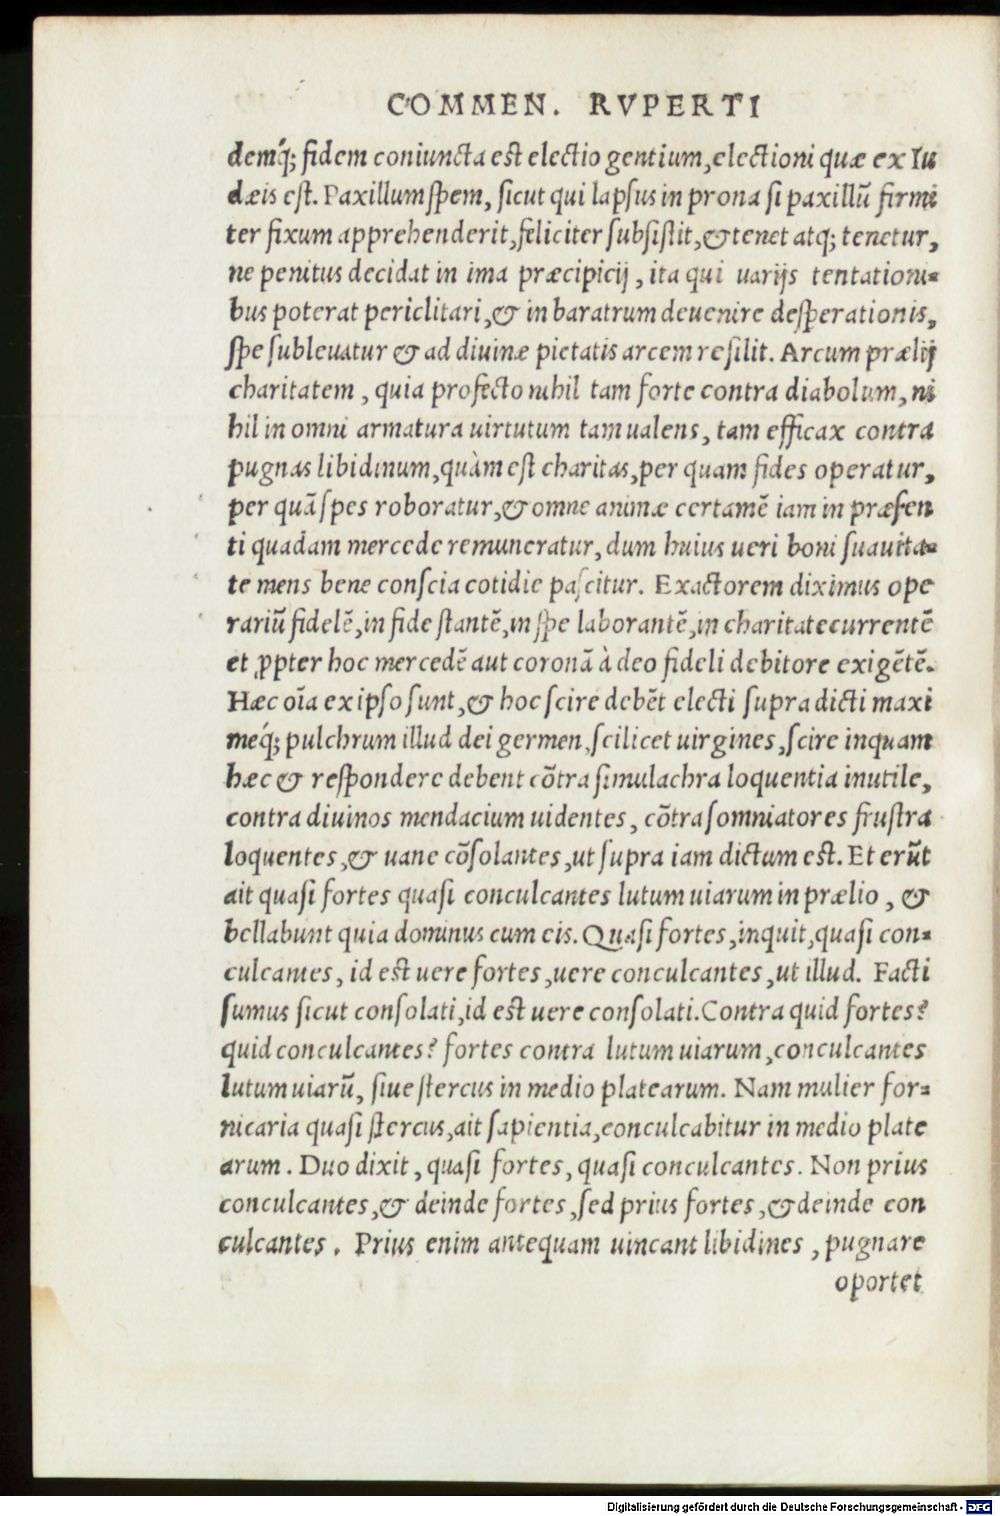 COMMEN. RVPERTI
demq́; fidem coniuncta est electio gentium, electioni quæ ex Iu
dæis est. Paxillum spem, sicut qui lapsus in prona si paxillũ firmi
ter fixum apprehenderit, feliciter subsistit, & tenet atq; tenetur,
ne penitus decidat in ima præcipicij, ita qui uarijs tentationi-
bus poterat periclitari, & in baratrum deuenire desperationis,
spe subleuatur & ad diuinæ pietatis arcem resilit. Arcum prælij
charitatem, quia profecto nihil tam forte contra diabolum, ni
hil in omni armatura uirtutum tam ualens, tam efficax contra
pugnas libidinum, quàm est charitas, per quam fides operatur,
per quã spes roboratur, & omne animæ certamẽ iam in præsen
ti quadam mercede remuneratur, dum huius ueri boni suauita-
te mens bene conscia cotidie pascitur. Exactorem diximus ope
rariũ fidelẽ, in fide stantẽ, in spe laborantẽ, in charitate currentẽ
et ꝓpter hoc mercedẽ aut coronã à deo fideli debitore exigẽtẽ.
Hæc oĩa ex ipso sunt, & hoc scire debẽt electi supra dicti maxi
meq́; pulchrum illud dei germen, scilicet uirgines, scire inquam
hæc & respondere debent cõtra simulachra loquentia inutile,
contra diuinos mendacium uidentes, cõtra somniatores frustra
loquentes, & uane cõsolantes, ut supra iam dictum est. Et erũt
ait quasi fortes quasi conculcantes lutum uiarum in prælio, &
bellabunt quia dominus cum eis. Quasi fortes, inquit, quasi con-
culcantes, id est uere fortes, uere conculcantes, ut illud. Facti
sumus sicut consolati, id est uere consolati. Contra quid fortes?
quid conculcantes? fortes contra lutum uiarum, conculcantes
lutum uiarũ, siue stercus in medio platearum. Nam mulier for-
nicaria quasi stercus, ait sapientia, conculcabitur in medio plate
arum. Duo dixit, quasi fortes, quasi conculcantes. Non prius
conculcantes, & deinde fortes, sed prius fortes, & deinde con
culcantes. Prius enim antequam uincant libidines, pugnare
oportet
Digitalisierung gefördert durch die Deutsche Forschungsgemeinschaft - DFG